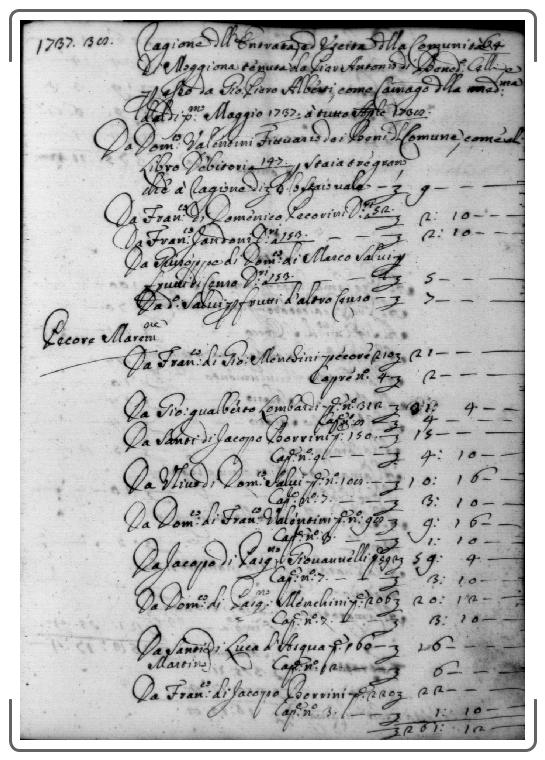 1737. 38. Ragione dell' Entrata ed Uscita della Comunità 64
Di Moggiona tenuta da Pier Antonio di Bened.
da Gio: Piero Alberti, come Camar.go della med.ma
dal dì p.mo Maggio 1737. a tutto Aple 1738.
Da Dom.co Valentini Fittuario dei Beni di Comune, come al
Libro Debitori a 147. Staia tre gran
che a ragione di lo staio vale — 9 — —
Da Fran.co di Domenico Pecorini D.ri a 152. — 2: 10 —
Da Fran.co Fantoni D.ri a 153 — 2: 10 —
Da Giuseppe di Dom.co di Marco Salvi p
frutti di Censo D.ri a 153. — 5 — —
Da d.o Salvi p frutti d'altro Censo — 7 — —
Pecore Marem.ne
Da Fran.co di Gio: Menchini pecore 210 21 — —
Capre n.o 4 2 — —
Da Gio: gualberto Lombardi p. n.o 312 — 31: 4 —
Cap. n.o 8 4 — —
Da Santi di Jacopo Borrini p. 150 — 15 — —
Cap. n.o 9 — 4: 10 —
Da Ulivo di Dom.co Salvi p. n.o 108 — 10: 16 —
Cap. n.o 7. — 3: 10 —
Da Dom.co di Fran.co Valentini p. n.o 98 9: 16 —
Cap. n.o 3. — 1: 10 —
Da Jacopo di Pasq. Giovannelli p. 592 59: 4 —
Cap. n.o 7. — 3: 10 —
Da Dom.co di Pasq. Menchini p. 206 20: 12 —
Cap. n.o 7. — 3: 10 —
Da Santi di Luca d'Acqua p. 160 — 16 — —
Martino Cap. n.o 12 — 6 — —
Da Fran.co di Jacopo Borrini p. 220 22 — —
Cap. n.o 3. — 1: 10 —
261: 12 —